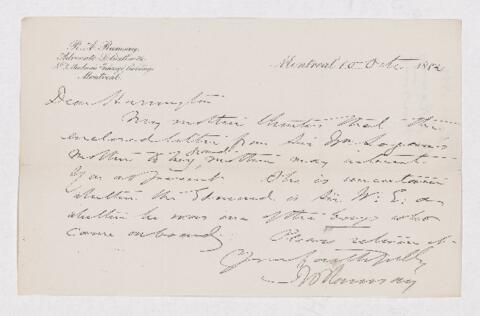 R. A. Ramsay,
Advocate &c.
Montreal.
Montreal 10 Octr 1882
Dear Harrington
My mother thinks that the
enclosed letter from Sir Wm Logan's
mother to my grand mother may interest
you at present. She is uncertain
whether the Edmund is Sir W. E. or
whether he was one of the boys who
came on board. Please return it.
Yours faithfully
R A Ramsay